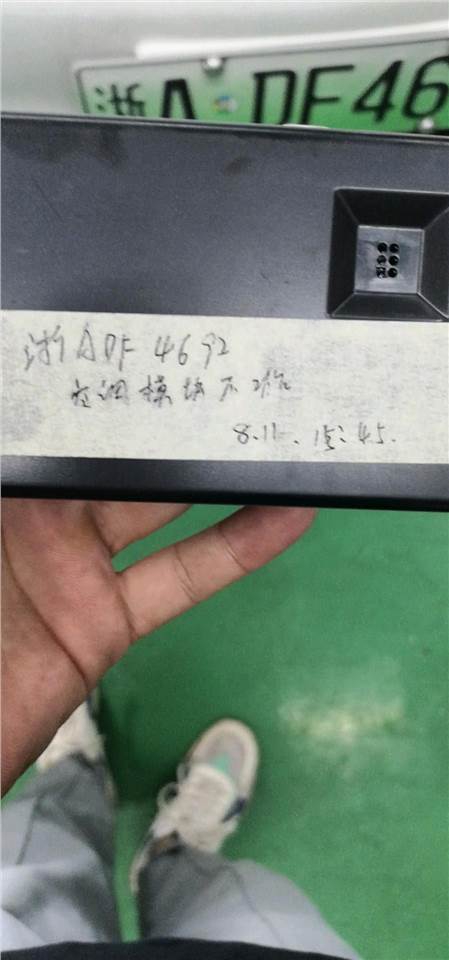 浙A DF46
浙ADF4692
空调模块不工作
8.11. 15:45.